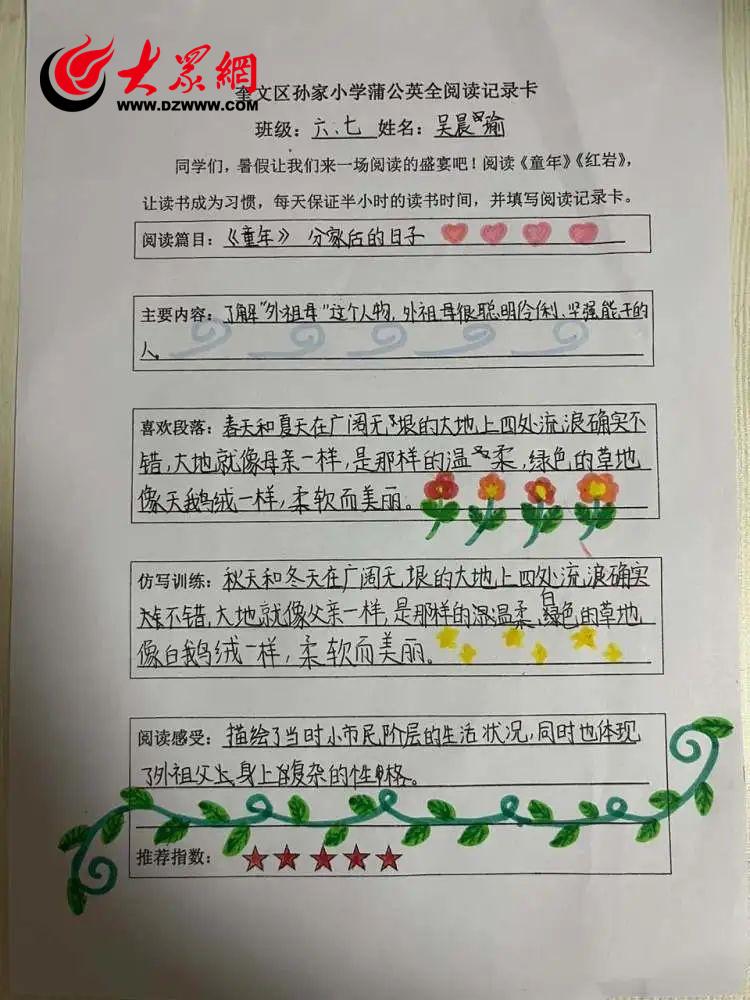 大众網
WWW.DZWWW.COM
奎文区孙家小学蒲公英全阅读记录卡
班级：六、七 姓名：吴晨瑜
同学们，暑假让我们来一场阅读的盛宴吧！阅读《童年》《红岩》，
让读书成为习惯，每天保证半小时的读书时间，并填写阅读记录卡。
阅读篇目：《童年》 分家后的日子
主要内容：了解“外祖母”这个人物，外祖母很聪明伶俐、坚强能干的
人。
喜欢段落：春天和夏天在广阔无垠的大地上四处流浪确实不
错，大地就像母亲一样，是那样的温柔，绿色的草地
像天鹅绒一样，柔软而美丽。
仿写训练：秋天和冬天在广阔无垠的大地上四处流浪确实
不错，大地就像父亲一样，是那样的温柔，白色的草地
像白鹅绒一样，柔软而美丽。
阅读感受：描绘了当时小市民阶层的生活状况，同时也体现
了外祖父身上复杂的性格。
推荐指数：★★★★★